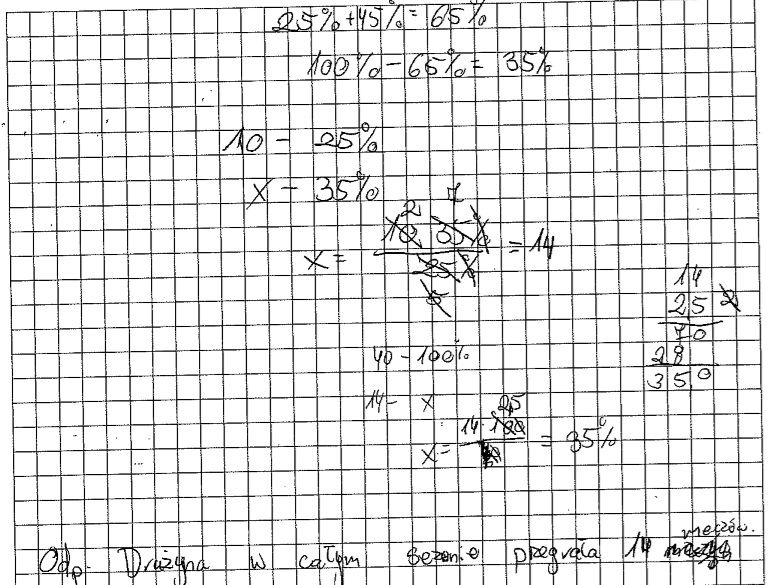 25%+45%=65%
100%-65%=35%
10 - 25%
x - 35%
2 7
x = 10 35% / 25% = 14
5
14
25 2
70
28
350
40 - 100%
14 - x
25
x = 14·100 / = 35%
meczów.
Odp. Drużyna w całym sezonie przegrała 14